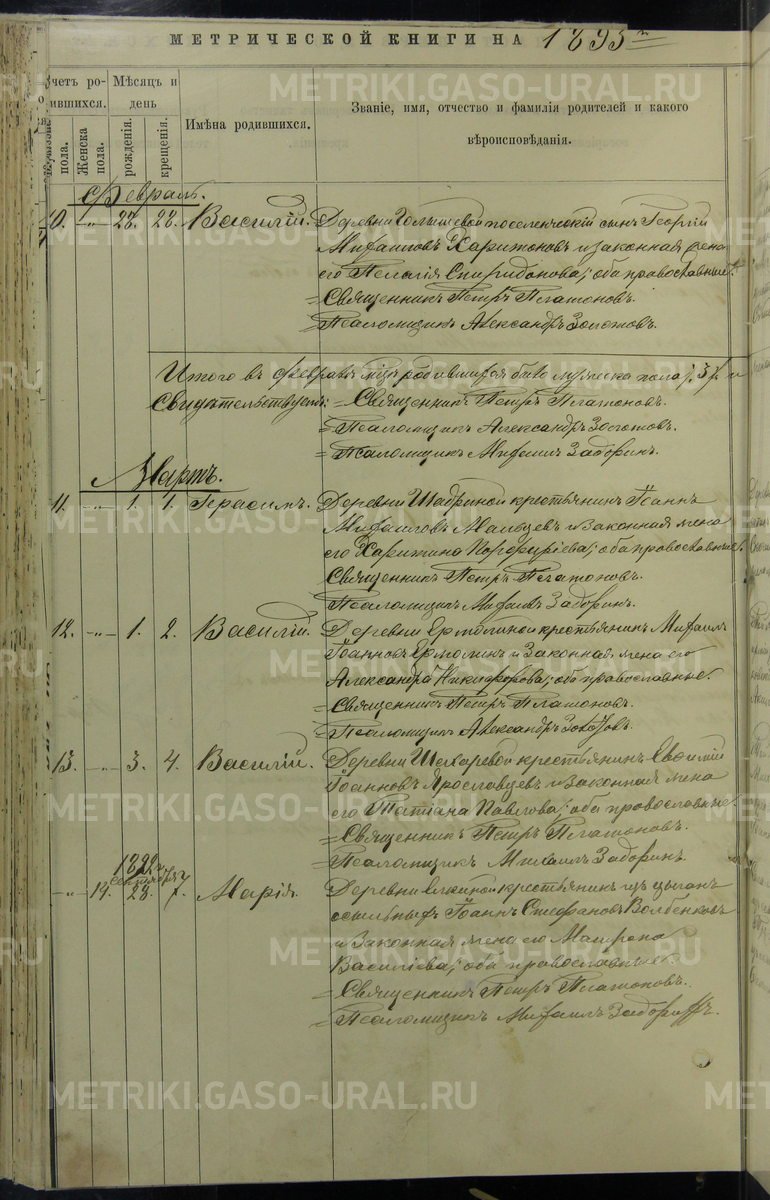 МЕТРИЧЕСКОЙ КНИГИ НА 1893
Счетъ ро-
дившихся.
Мѣсяцъ и
день
Имена родившихся.
Званіе, имя, отчество и фамилія родителей и какого
вѣроисповѣданія.
пола.
Женска
пола.
рожденія.
крещенія.
Февраль.
10. 28. 28. Василій. Деревни поселенческій сынъ Георгій
Михаиловъ Харитоновъ и законная жена
его Пелагія Спиридонова; оба православные.
Священникъ Петръ Платоновъ.
Псаломщикъ Александръ Золотовъ.
Итого в родившихся было мужеска пола
Свидѣтельствуемъ: Священникъ Петръ Платоновъ.
Псаломщикъ Александръ Золотовъ.
Псаломщикъ Михаилъ Задоринъ.
Мартъ.
11. 1. 1. Герасимъ. Деревни Шадриной крестьянинъ Іоаннъ
Михаиловъ Мальцевъ и законная жена
его Харитина Порфиріева; оба православные.
Священникъ Петръ Платоновъ.
Псаломщикъ Михаилъ Задоринъ.
12. 1. 2. Василій. Деревни Ермолиной крестьянинъ Михаилъ
Іоанновъ Ермолинъ и законная жена его
Александра Никифорова; оба православные.
Священникъ Петръ Платоновъ.
Псаломщикъ Александръ Золотовъ.
13. 3. 4. Василій. Деревни крестьянинъ
Іоанновъ Ярославцевъ и законная жена
его Татіана Павлова; оба православные.
Священникъ Петръ Платоновъ.
Псаломщикъ Михаилъ Задоринъ.
1892
сентября
14. 28. 7. Марія. Деревни крестьянинъ изъ цыганъ
ссыльныхъ Іоаннъ Стефановъ
и законная жена его Матрона
Василіева; оба православные.
Священникъ Петръ Платоновъ.
Псаломщикъ Михаилъ Задоринъ.
METRIKI.GASO-URAL.RU